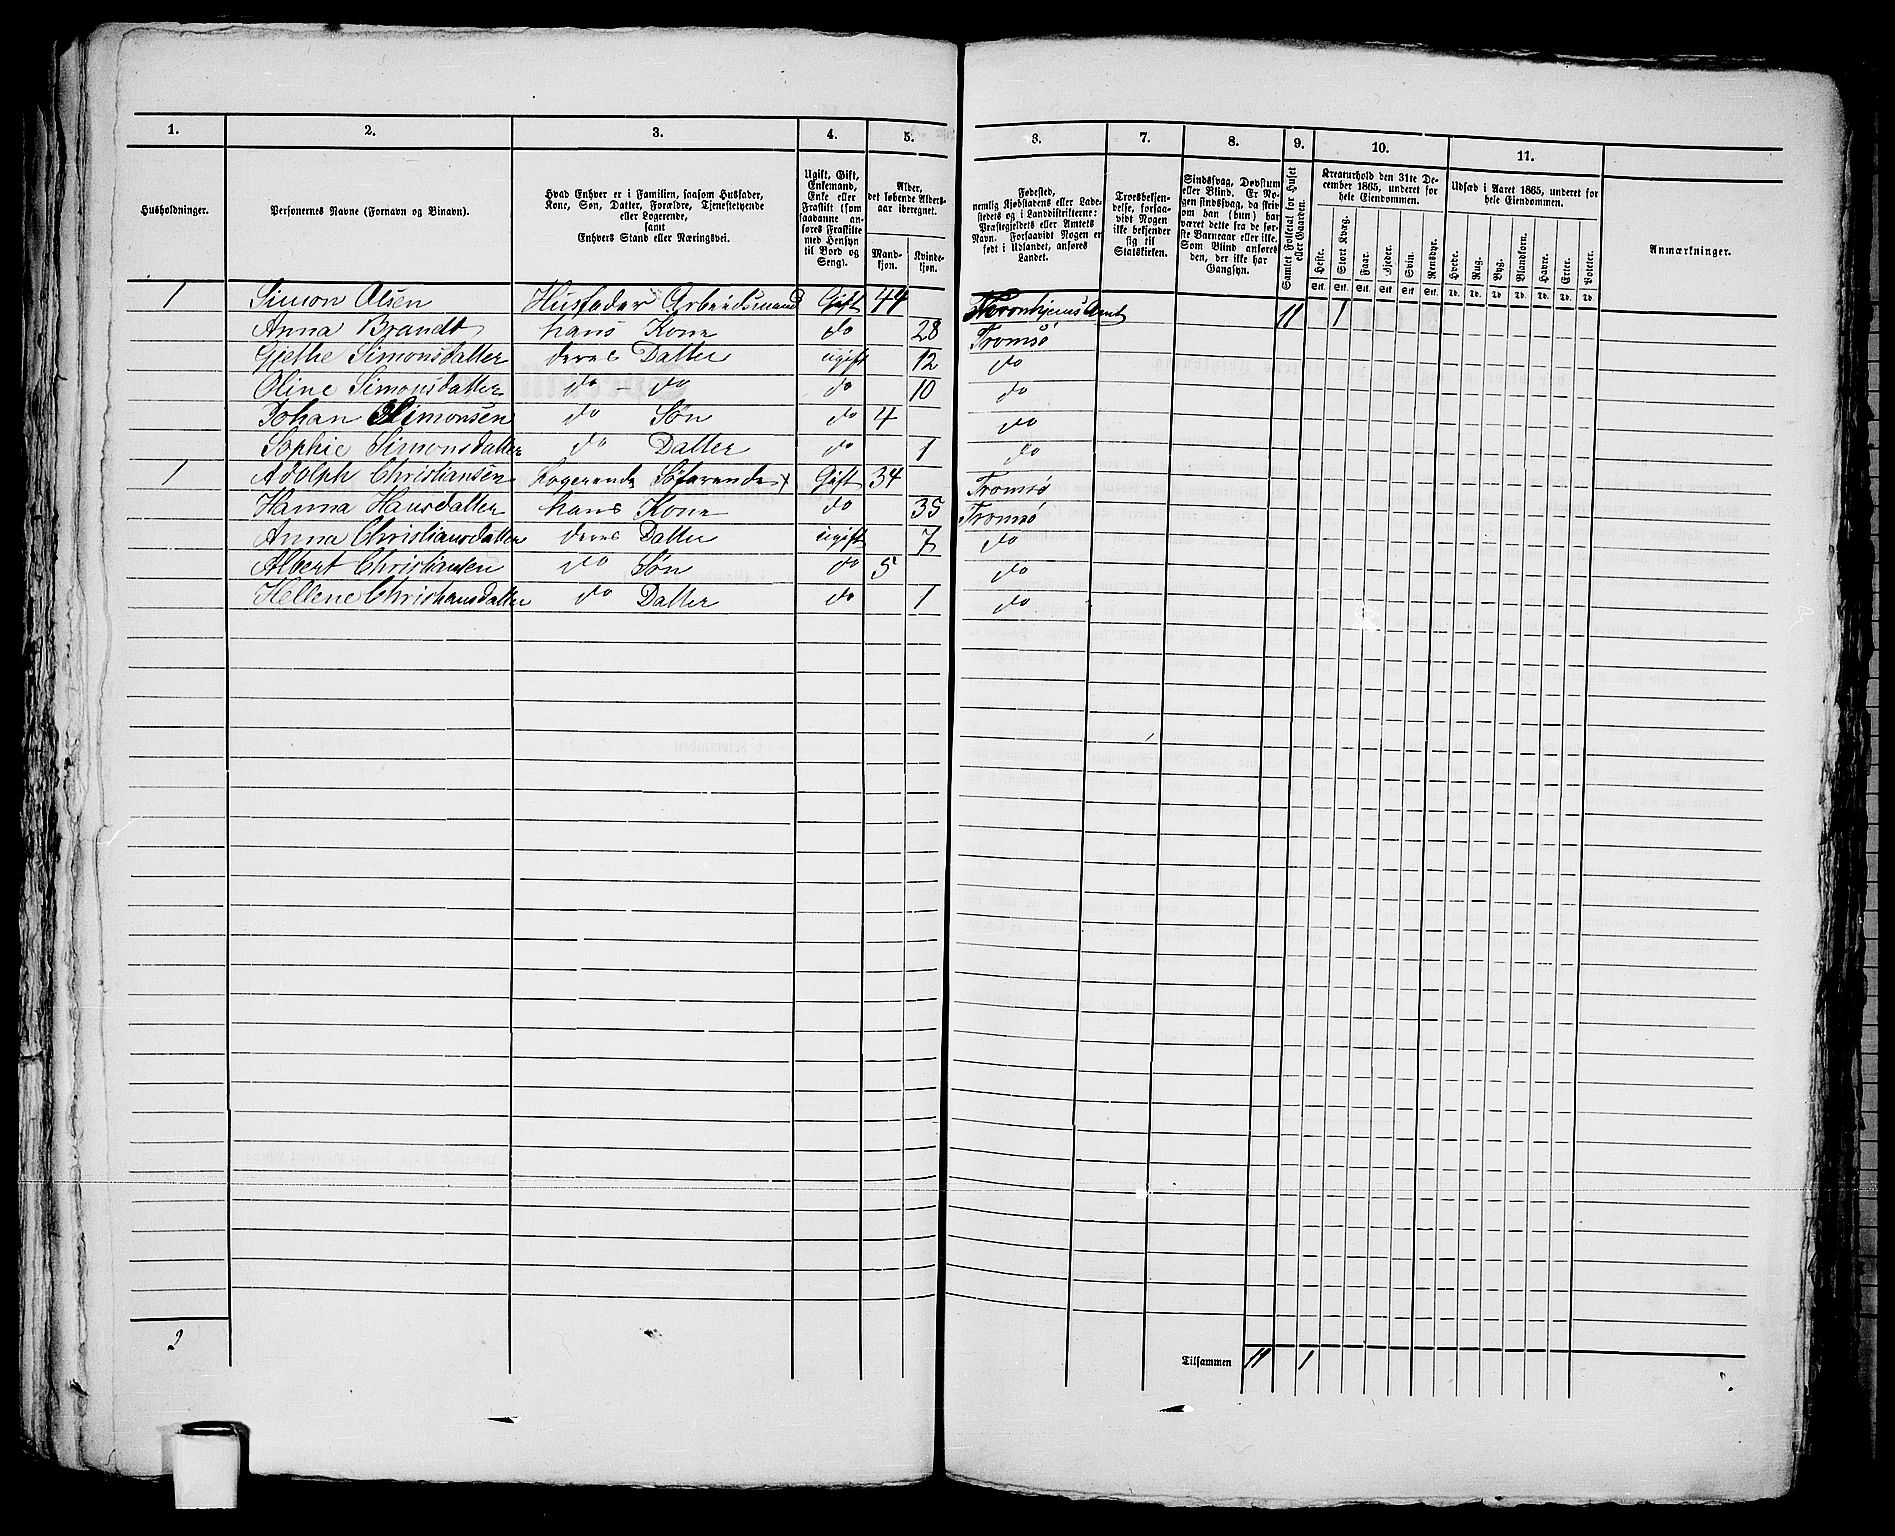 1. 2. 3. 4. 5. 6. 7. 8. 9. 10. 11.
Husholdninger.
Personernes Navne (Fornavn og Binavn).
Hvad Enhver er i Familien, saasom Husfader,
Kone, Søn, Datter, Forældre, Tjenestetyende
eller Logerende,
samt
Enhvers Stand eller Næringsvei.
Ugift, Gift,
Enkemand,
Enke eller
Fraskilt (som
saadanne an-
føres Fraskilte
med Hensyn
til Bord og
Seng).
Alder,
det løbende Alders-
aar iberegnet.
Mand-
kjøn.
Kvinde-
kjøn.
Fødested,
nemlig Kjøbstadens eller Lade-
stedets og i Landdistrikterne:
Præstegjeldets eller Amtets
Navn. Forsaavidt Nogen er
født i Udlandet, anføres
Landet.
Troesbekjen-
delse, forsaa-
vidt Nogen
ikke bekjender
sig til
Statskirken.
Sindssvag, Døvstum
eller Blind. Er No-
gen sindssvag, da skriv
om han (hun) har
været dette fra de før-
ste Barneaar eller ikke.
Som Blind anføres
den, der ikke har
Gangsyn.
Samlet Folketal for Huset
eller Gaarden.
Kreaturhold den 31te De-
cember 1865, underet for
hele Eiendommen.
Heste. Stort Kvæg. Faar. Gjeder. Svin. Rensdyr.
Stk. Stk. Stk. Stk. Stk. Stk.
Udsæd i Aaret 1865, underet for
hele Eiendommen.
Hvede. Rug. Byg. Blandkorn. Havre. Erter. Poteter.
Td. Td. Td. Td. Td. Td. Td.
Anmærkninger.
1 Simon Olsen Husfader Arbeidsmand Gift 44 Tronhjems Amt 11 1
Anna Brandt hans Kone do 28 Tromsø
Gjethe Simonsdatter deres Datter ugift 12 do
Oline Simonsdatter do do do 10 do
Johan Simonsen do Søn do 4 do
Sophie Simonsdatter do Datter do 1 do
1 Adolph Christiansen Logerende Søfarende Gift 34 Tromsø
Hanna Hansdatter hans Kone do 35 Tromsø
Anna Christiansdatter deres Datter ugift 7 do
Albert Christiansen do Søn do 5 do
Hellene Christiansdatter do Datter do 1 do
2 Tilsammen 11 1